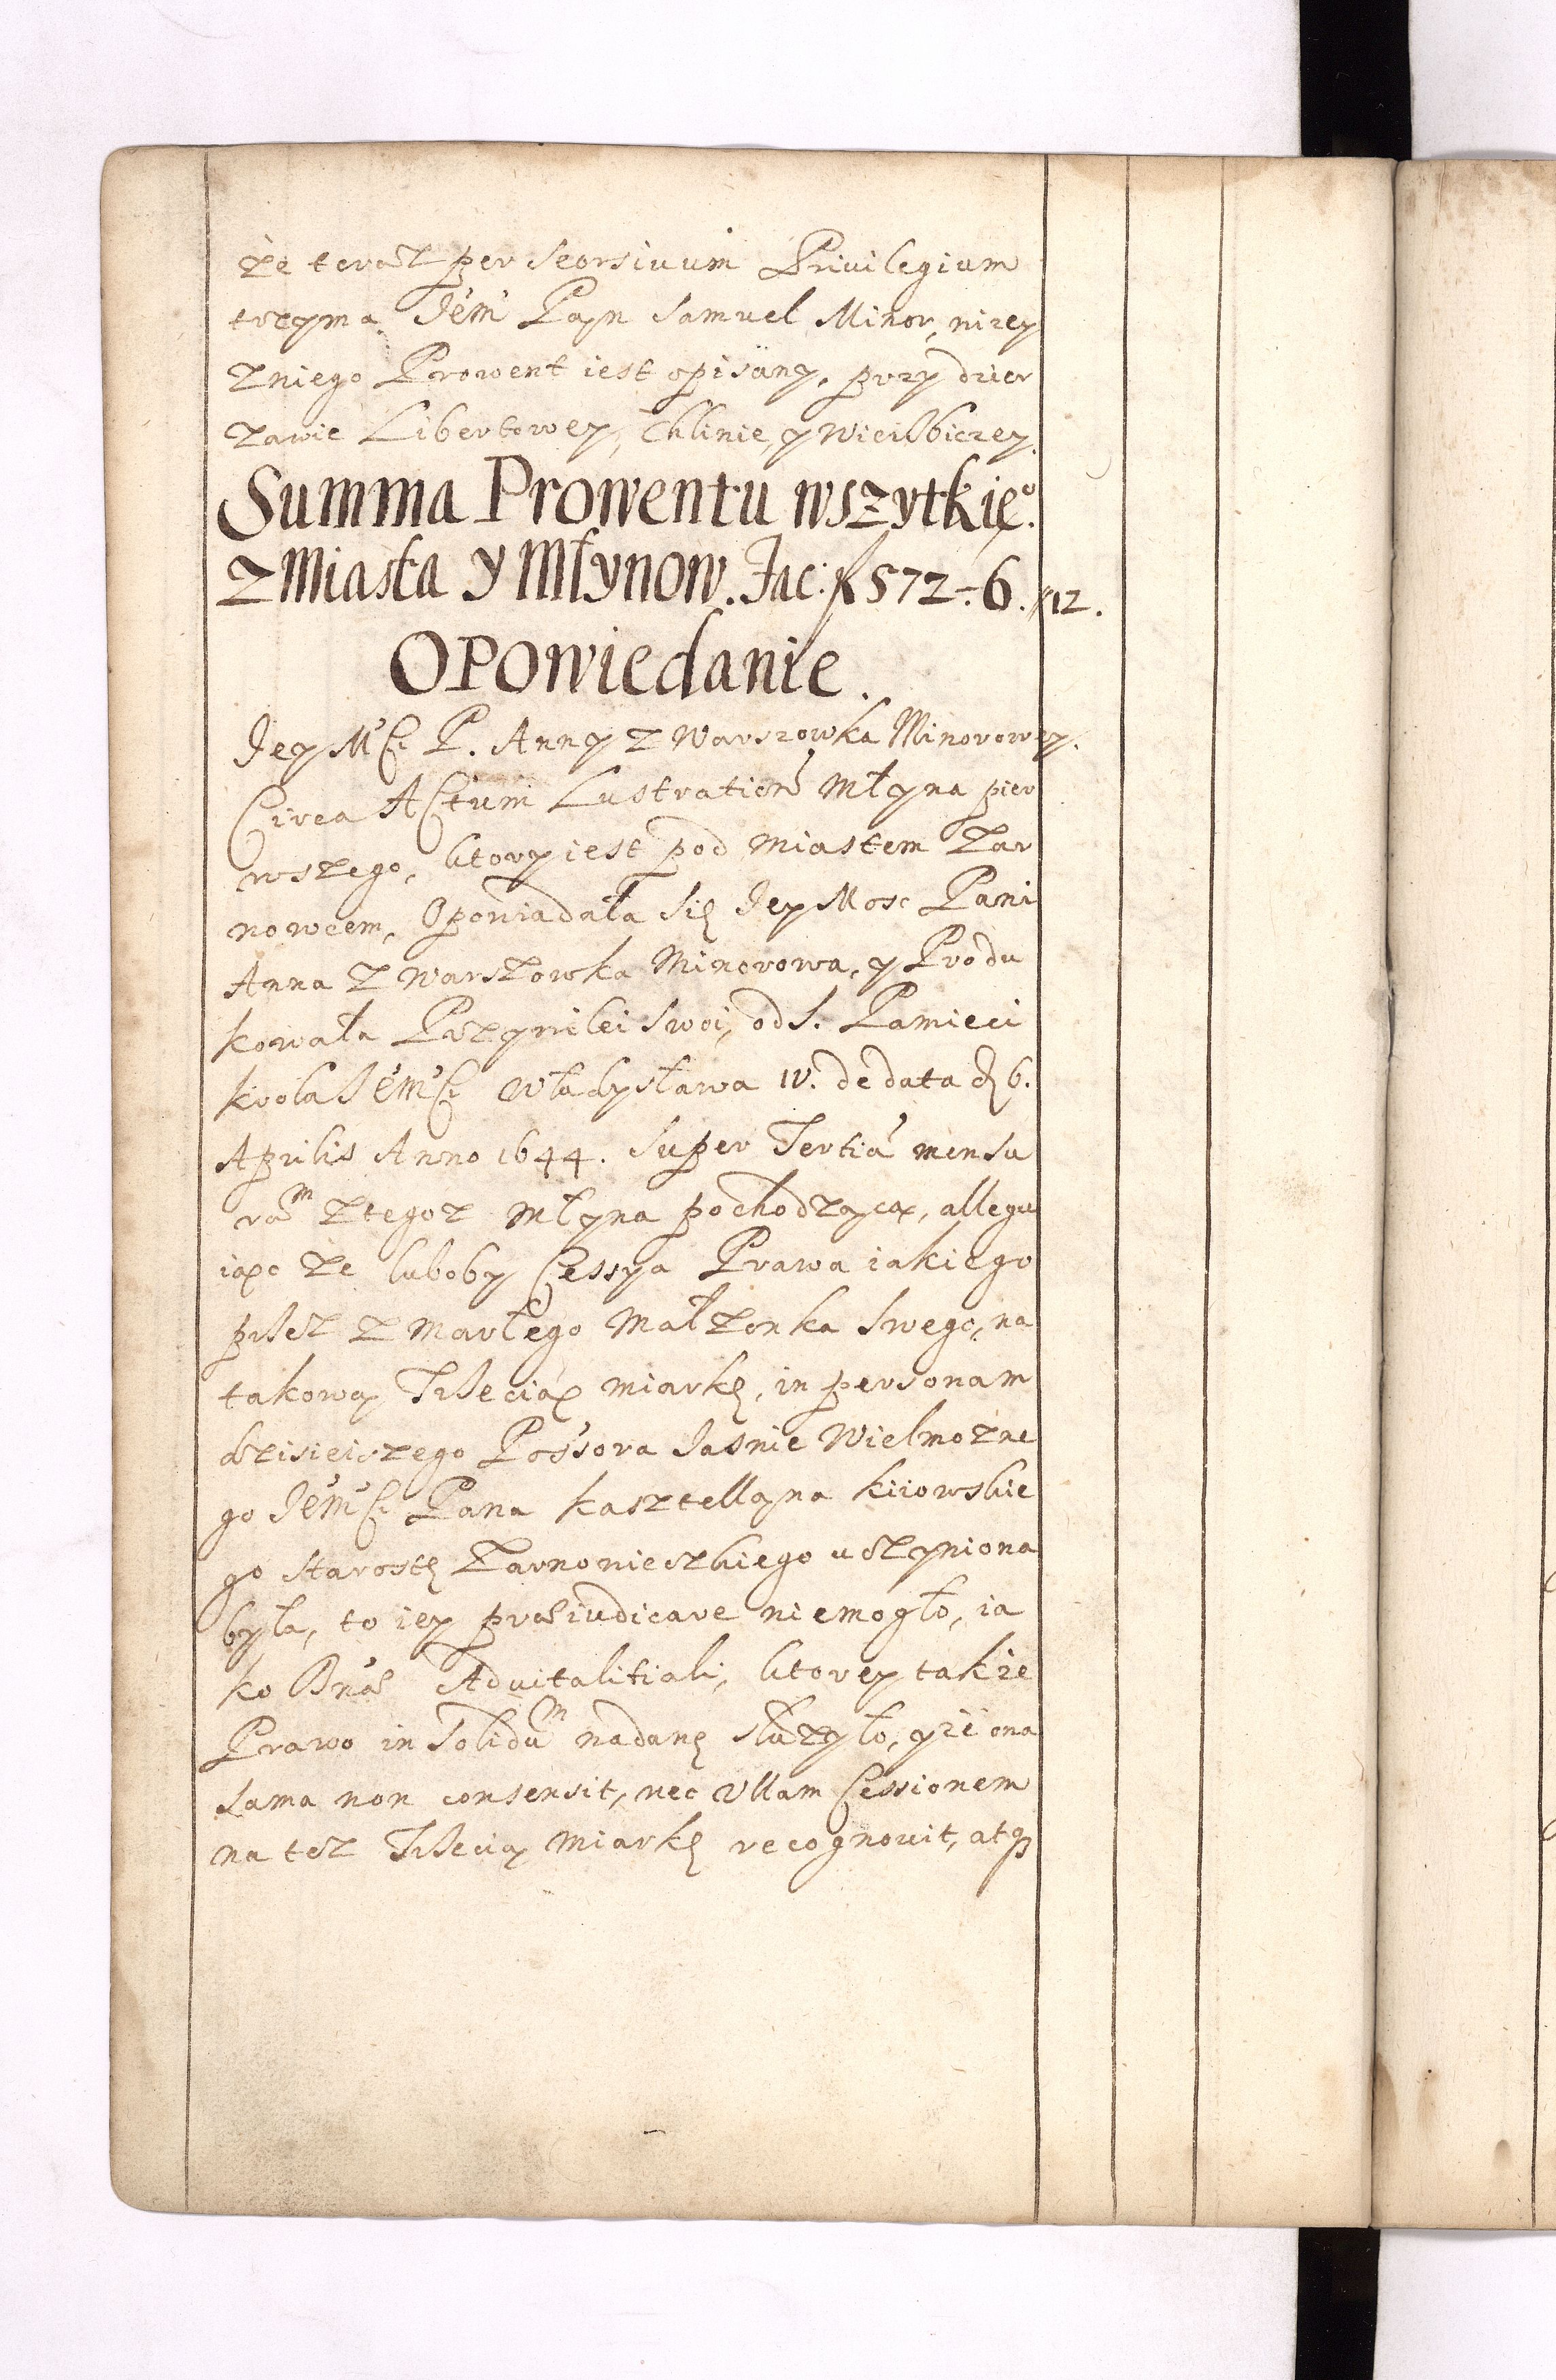 że teraz per seorsiuum Priuilegium
trzyma Jem Pąn Samuel Minor, nizey
zniego Prowent iest opisany, przy dzier
zawie Libertowey, Chlinie, y Wierzbiczey.
Summa Prowentu wszytkieo.
z Miasta y Młynow. Fac: f 572 ÷ 6. // 12.
Opowiedanie.
Jey Mci P. Anny z Warszowka Minorowey.
Circa Actum Lustrationi Młyna pier
wszego, ktory iest pod miastem Zar
nowcem, Opowiadała się Jey Mosc Pani
Anna z Warszowka Minorowa, y Produ
kowała Przywilei swoi, od S. Pamieci
krola Jemci Władysława IV. de data d 6.
Aprilis Anno 1644. Super Tertia mensu
ram ztegoz Młyna pochodzącą, allegu
iąc ze luboby Cessya Prawa iakiego
przez zmarłego Małzonka swego, na
takową Trzecią miarkę, in personam
dzisieiszego Possora Jasnie Wielmozne
go Jemci Pana Kasztellana kiiowskie
go Starostę Zarnowieckiego uczyniona
była, to iey præiudicare niemogło, ia
ko Dnæ Aduitalitiali, ktorey takze
Prawo in Solidum nadanę słuzyło, yzi ona
sama non consensit, nec vllam Cessionem
na tęz Trzecią Miarkę recognouit, atq